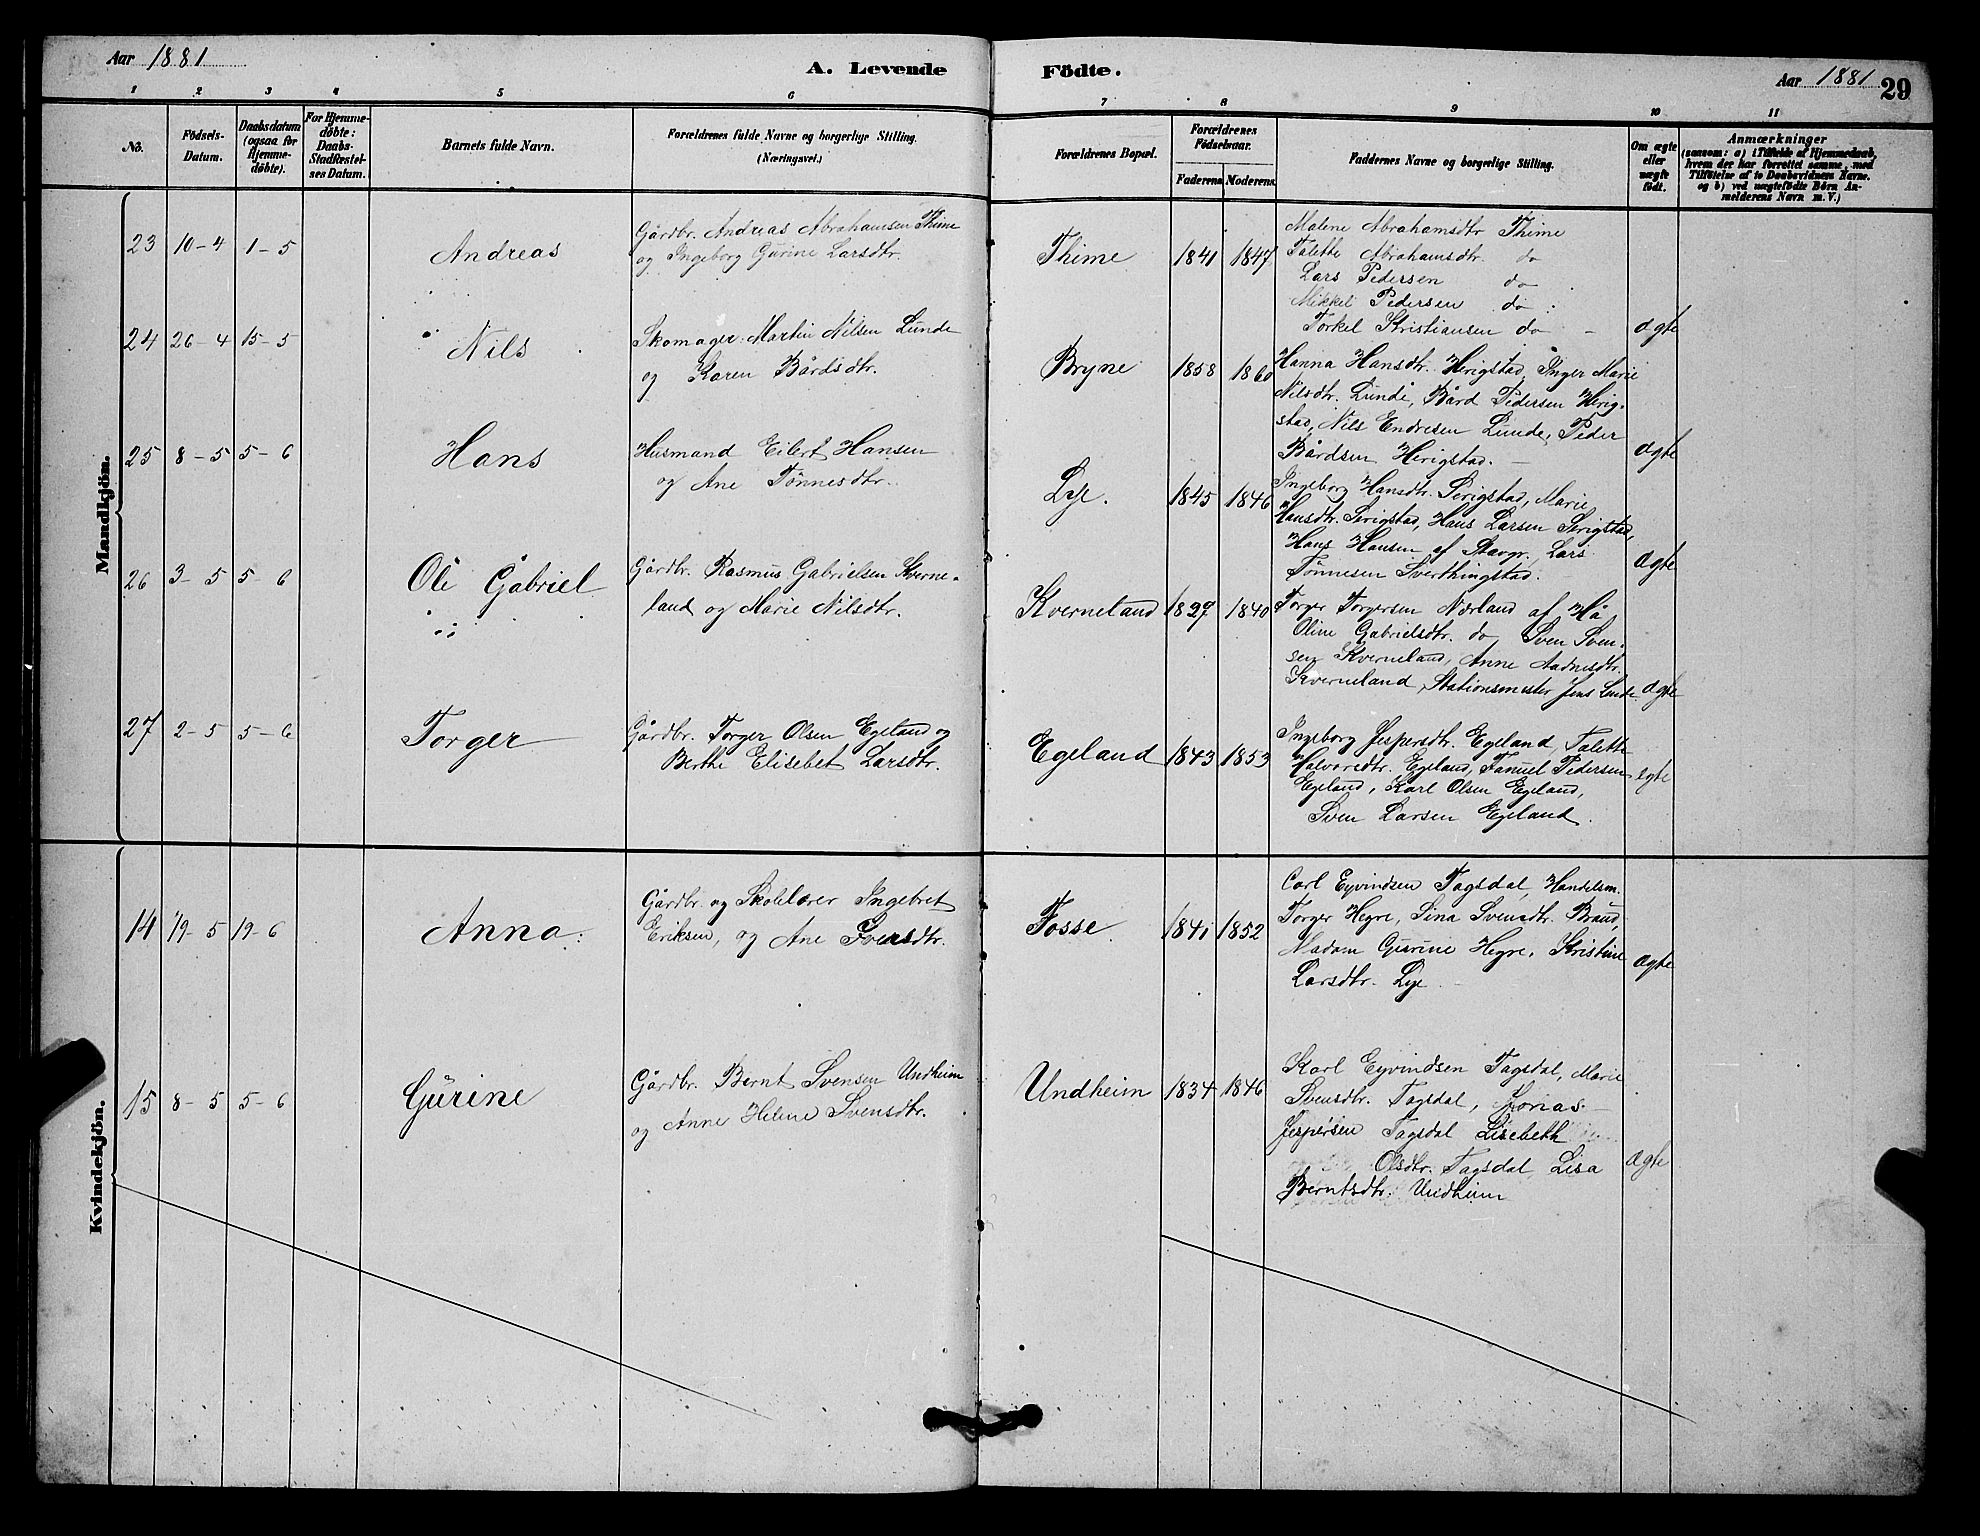 Aar 1881
A. Levende Födte.
Aar 1881 29
1 2 3 4 5 6 7 8 9 10 11
No.
Födsels-Datum.
Daabsdatum (ogsaa for Hjemmedöbte).
For Hjemmedöbte: Daabs-Stadfæstelses Datum.
Barnets fulde Navn.
Forældrenes fulde Navne og borgerlige Stilling. (Næringsvei.)
Forældrenes Bopæl.
Forældrenes Födselsaar.
Faderens. Moderens.
Faddernes Navne og borgerlige Stilling.
Om ægte eller uægte födt.
Anmærkninger
(saasom: a) i Tilfælde af Hjemmedaab,
hvem der har forrettet samme, med
Tilföielse af to Daabsvidners Navne.
og b) ved uægtefödte Börn An-
melderens Navn m. V.)
Mandkjön.
23 10-4 1-5 Andreas
Gårdbr. Andreas Abrahamsen Thime
og Ingeborg Gurine Larsdtr.
Thime 1841 1847
Malene Abrahamsdtr Thime
Talette Abrahamsdtr. do
Lars Pedersen do
Mikkel Pedersen do
Torkel Kristiansen do - ægte
24 26-4 15-5 Nils
Skomager Martin Nilsen Lunde
og Karen Bårdsdtr.
Bryne 1858 1860
Hanna Hansdtr. Herigstad, Inger Marie
Nilsdtr. Lunde, Bård Pedersen Herig-
stad, Nils Endresen Lunde, Peder
Bårdsen Herigstad. - ægte
25 8-5 5-6 Hans
Husmand Eilert Hansen
og Ane Tönnesdtr.
Lye. 1845 1846
Ingeborg Hansdtr. Serigstad, Marie
Hansdtr. Serigstad, Hans Larsen Serigstad,
Hans Hansen af Stavgr. Lars
Tönnesen Sverthingstad. ægte
26 3-5 5-6 Ole Gabriel
Gårdbr. Rasmus Gabrielsen Kverne-
land og Marie Nilsdtr.
Kverneland 1829 1840
Torger Torgersen Nærland af Hå
Oline Gabrielsdtr. do Sven Sven-
sen Kverneland, Anne Aadnesdtr.
Kverneland, Stationsmester Jens Lunde. ægte
27 2-5 5-6 Torger
Gårdbr. Torger Olsen Egeland og
Berthe Elisebet Larsdtr.
Egeland 1843 1853
Ingeborg Jespersdtr. Egeland, Talette
Halvorsdtr. Egeland, Tanuel Pedersen
Egeland, Karl Olsen Egeland,
Sven Larsen Egeland. egte
Kvindekjön.
14 19-5 19-6 Anna.
Gårdbr. og Skolelærer Ingebret
Eriksen, og Ane Sversdtr.
Fosse. 1841 1852
Carl Eyvindsen Tagsdal, Handelsm.
Torger Hegre, Sina Svensdtr. Braud,
Madam Gurine Hegre, Kristine
Larsdtr. Lye. ægte
15 8-5 5-6 Gurine
Gårdbr. Bernt Svensen Undheim
og Anne Helene Svensdtr.
Undheim 1834 1846
Karl Eyvindsen Tagsdal, Marie
Svensdtr. Tagsdal, Jonas
Jespersen Tagsdal Lisebeth
Olsdtr. Tagsdal, Lisa
Berntsdtr. Undheim ægte